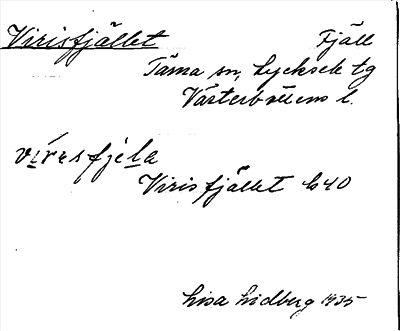 Virisfjället Fjäll
Tärna sn, Lycksele tg
Västerbottens l.
víresfjela
Virisfjället b40
Lisa Lidberg 1935